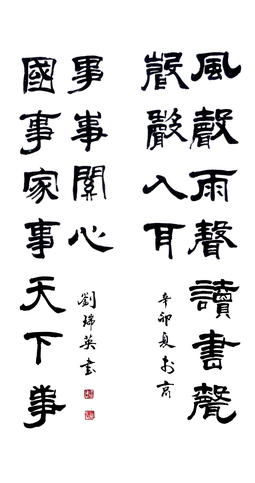 風聲雨聲讀書聲
聲聲入耳
辛卯夏於京
國事家事天下事
事事關心
劉瑞英書